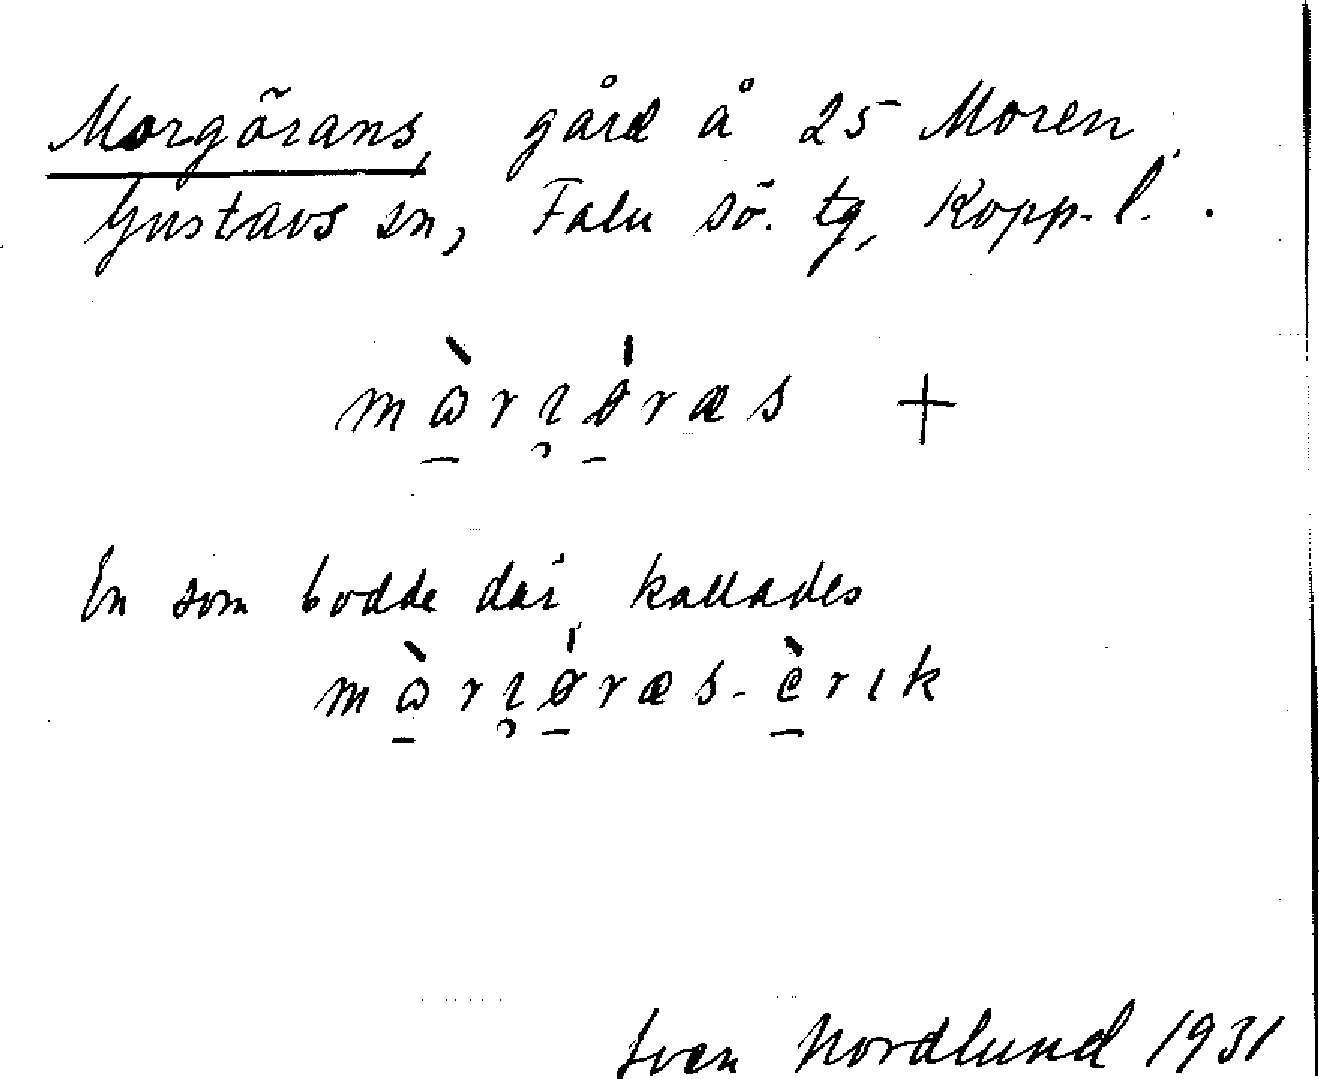 Morgörans, gård å 25 Moren
Gustavs sn, Falu sö. tg, Kopp. l.
En som bodde där kallades
Sven Nordlund 1931